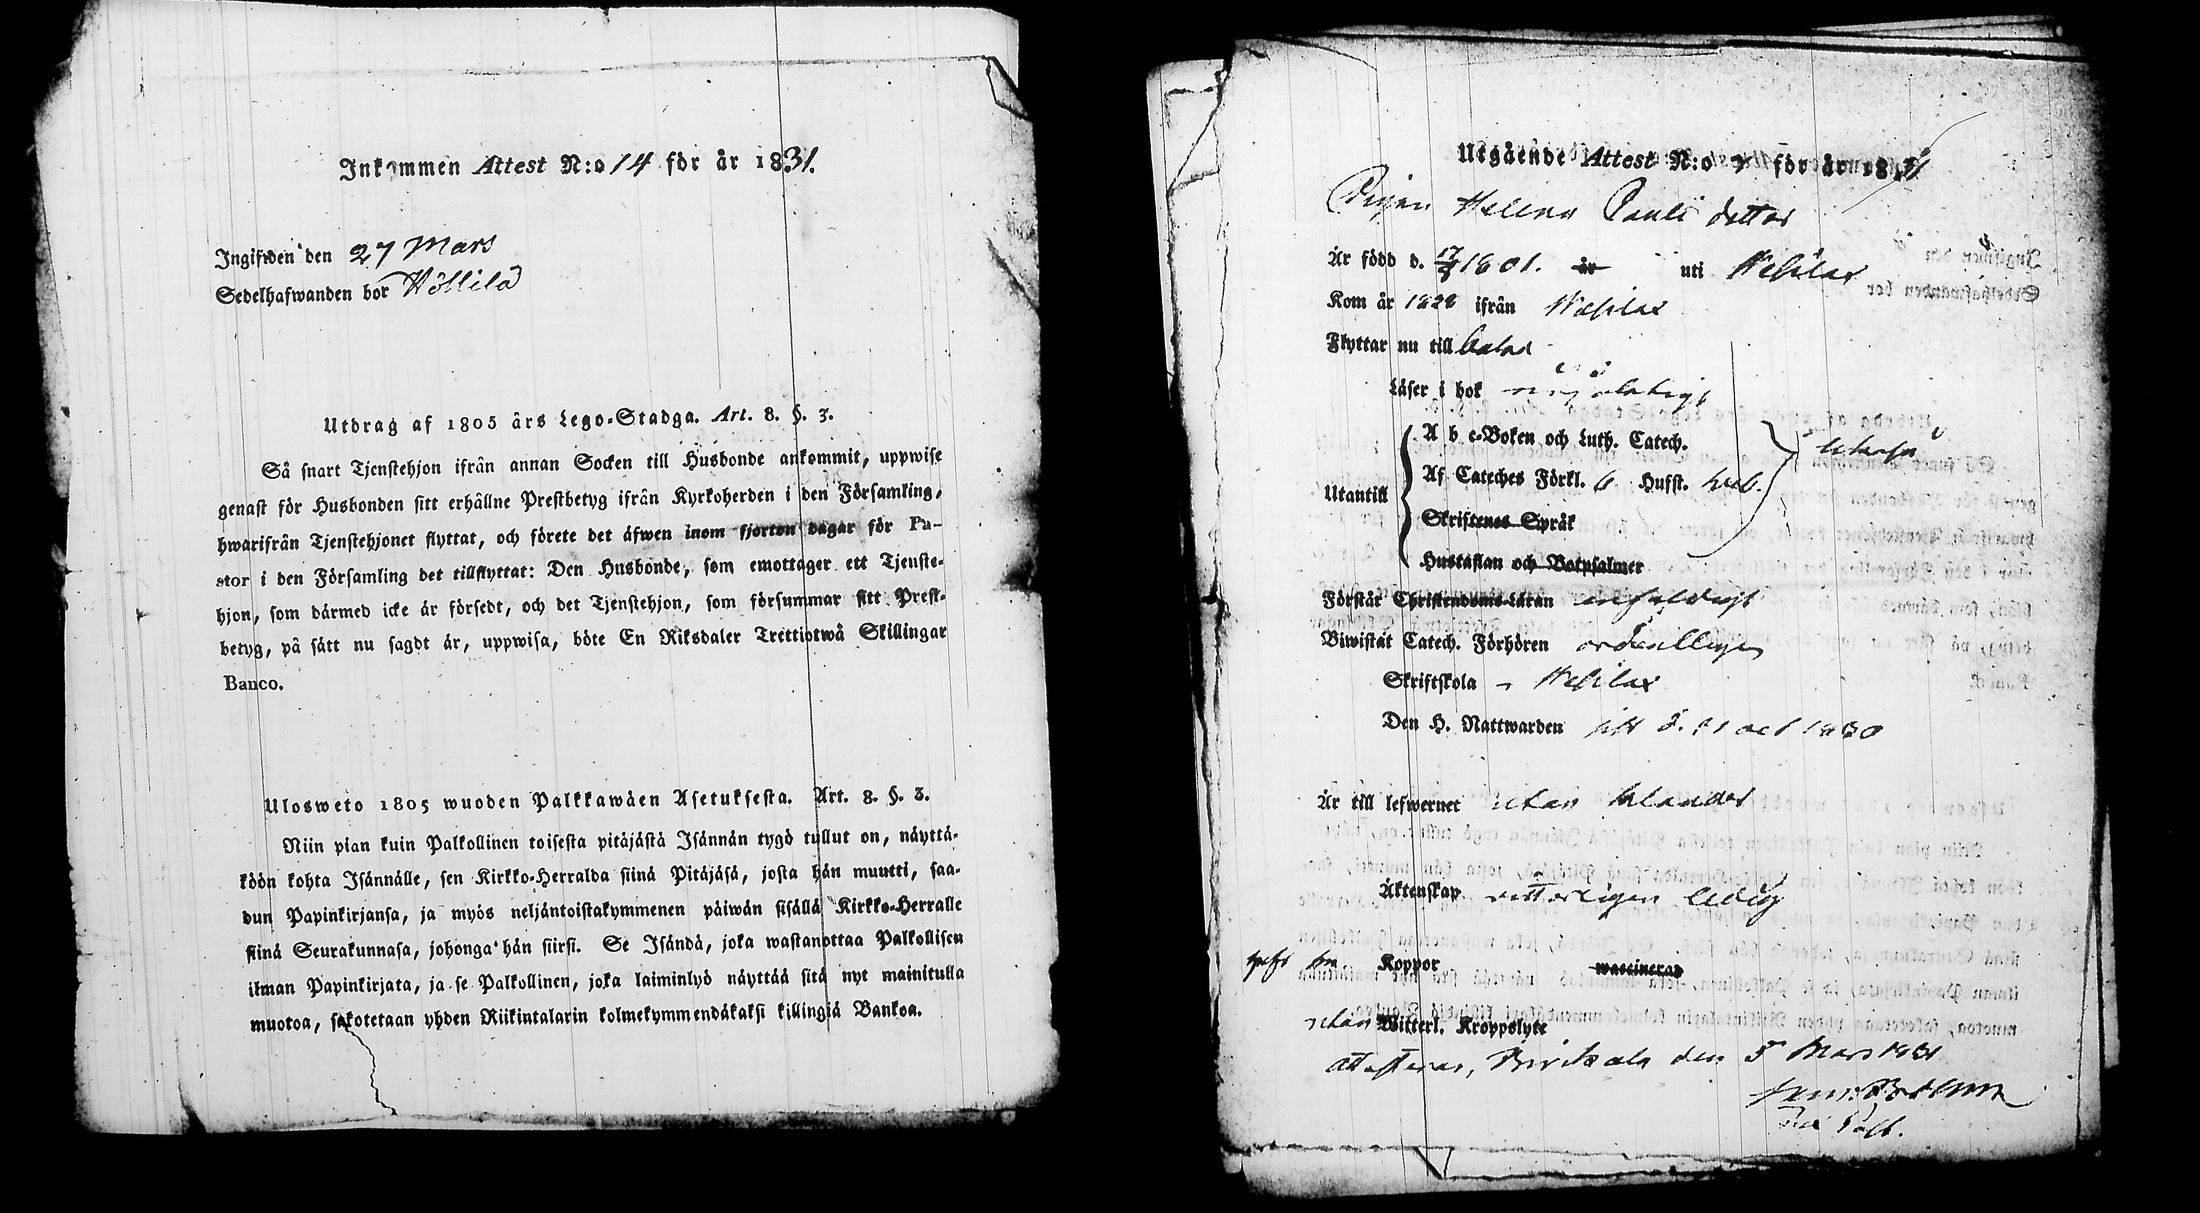 Inkommen Attest N:o 14 för år 1831.
Ingifwen den 27 Mars
Sedelhafwanden bor Höllilä
Utdrag af 1805 års Lego-Stadga. Art. 8. §. 3.
Så snart Tjenstehjon ifrån annan Socken till Husbonde ankommit, uppwise
genast för Husbonden sitt erhållne Prestbetyg ifrån Kyrkoherden i den Församling,
hwarifrån Tjenstehjonet flyttat, och förete det äfwen inom fjorton dagar för Pa-
stor i den Församling det tillflyttat: Den Husbonde, som emottager ett Tjenste-
hjon, som därmed icke är försedt, och det Tjenstehjon, som försummar sitt Prest-
betyg, på sätt nu sagdt är, uppwisa, böte En Riksdaler Trettiotwå Skillingar
Banco.
Ulosweto 1805 wuoden Palkkawäen Asetuksesta. Art. 8. §. 3.
Niin pian kuin Palkollinen toisesta pitäjästä Isännän tygö tullut on, näyttä-
köön kohta Isännälle, sen Kirkko-Herralda siinä Pitäjäsä, josta hän muutti, saa-
dun Papinkirjansa, ja myös neljäntoistakymmenen päiwän sisällä Kirkko-Herralle
siinä Seurakunnasa, johonga hän siirsi. Se Isändä, joka wastanottaa Palkollisen
ilman Papinkirjata, ja se Palkollinen, joka laiminlyö näyttää sitä nyt mainitulla
muotoa, sakotetaan yhden Riikintalarin kolmekymmendäkaksi killingiä Bankoa.
Utgående Attest N:o för år 1831
Pigan Helena Pauli dotter
Är född d. 1801. år uti Wesilax
Kom år 1828 ifrån Wesilax
Flyttar nu till
Läser i bok
A b c-Boken och Luth. Catech.
Utantill Af Cateches Förkl. 6 Hufst.
Skriftenes Språk
Hustaflan och Botpsalmer
Förstår Christendoms-Läran enfaldigt
Biwistat Catech. Förhören ordentligen
Skriftskola - Wesilax
Den H. Nattwarden sist d. 31 oct 1830
Är till lefwernet utan klander
Äktenskap witterligen ledig
Koppor waccinerad
utan Witterl. Kroppslyte
Attesteras, Birkala den 5 Mars 1831